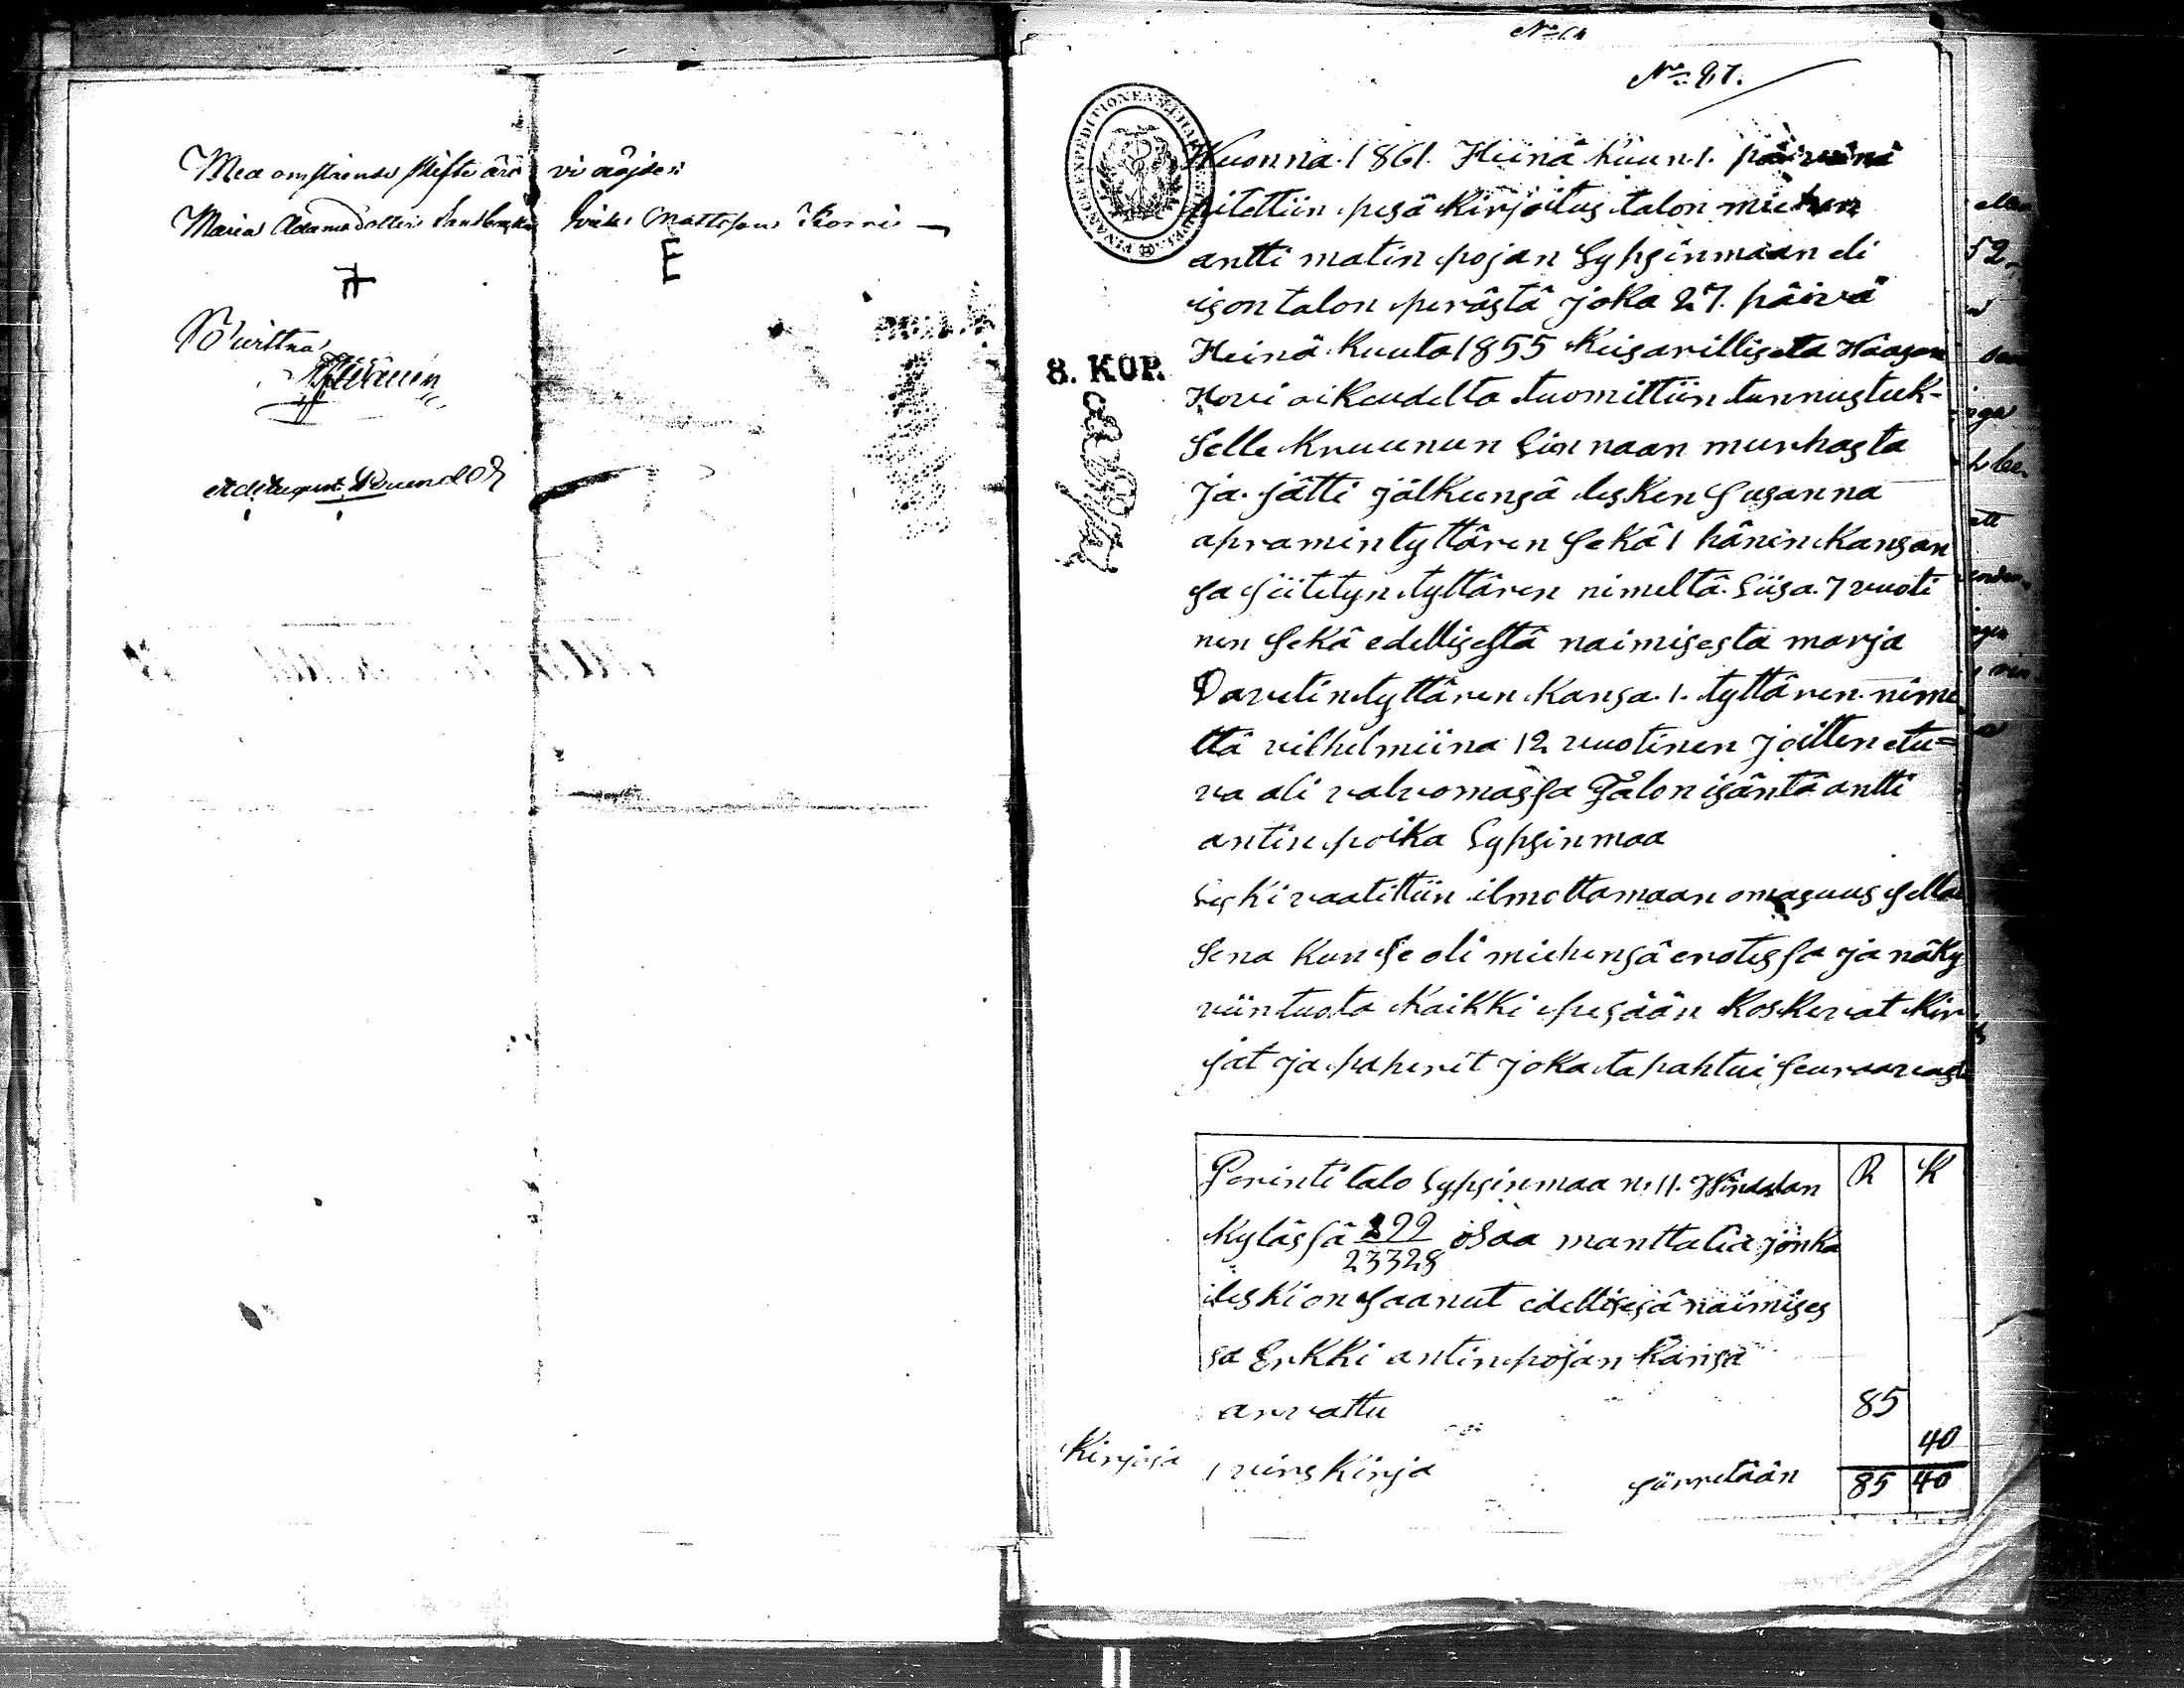 Med omstående skifte äro vi nöjde:
Maria Adamsdotter Erik Mattsson Korri
Bevittna
No 87.
8. KOP.
Wuonna 1861 Heinä kuun 1. päivänä
pitettiin pesä kirjoitus talon miehen
antti matin pojan Lypsinmaan eli
ison talon perästä joka 27. päivä
Heinä kuuta 1855 keisarilliselta Waasan
Hovi oikeudelta tuomittiin tunnustuk-
selle kruunun linnaan murhasta
ja jätti jälkensä lesken Susanna
apramintyttären sekä 1 hänen kansan
sa siitetyn tyttären nimeltä Liisa 7 vuoti
nen sekä edellisestä naimisesta marja
Davetin tyttären kansa 1. tyttären nime
ltä vilhelmiina 12 vuotinen joitten etu=
va oli valvomassa Talon isäntä antti
antin poika Lypsinmaa
Leski vaatittiin ilmottamaan omasuus sella
sena kun se oli miehensä erotessa ja näky
viin tuota kaikki pesään koskevat kir
jat ja paperit joka tapahtui seuraavast
Perintö talo Lypsinmaa n: 11. Hindalan R K
kylässä 299/23328 osaa manttalia jonka
leski on saanut edellisesä naimises
sa Erkki antin pojan kansa
arvattu 85
Kirjoja 1 virs kirja 40
siirretään 85 40